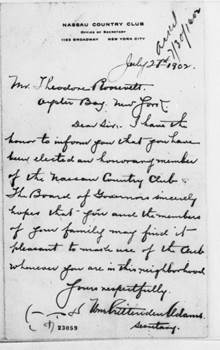 NASSAU COUNTRY CLUB
OFFICE OF SECRETARY
1123 BROADWAY NEW YORK CITY
Ackd
7/30/1902
July 28th 1902.
Mr. Theodore Roosevelt.
Oyster Bay. New York
Dear Sir:- I have the
honor to inform you that you have
been elected an honorary member
of the Nassau Country Club.
The Board of Governors sincerely
hopes that you and the members
of your family may find it
pleasant to make use of the Club
whenever you are in this neighborhood
Yours respectfully.
Wm Crittenden Adams.
Secretary.
23059